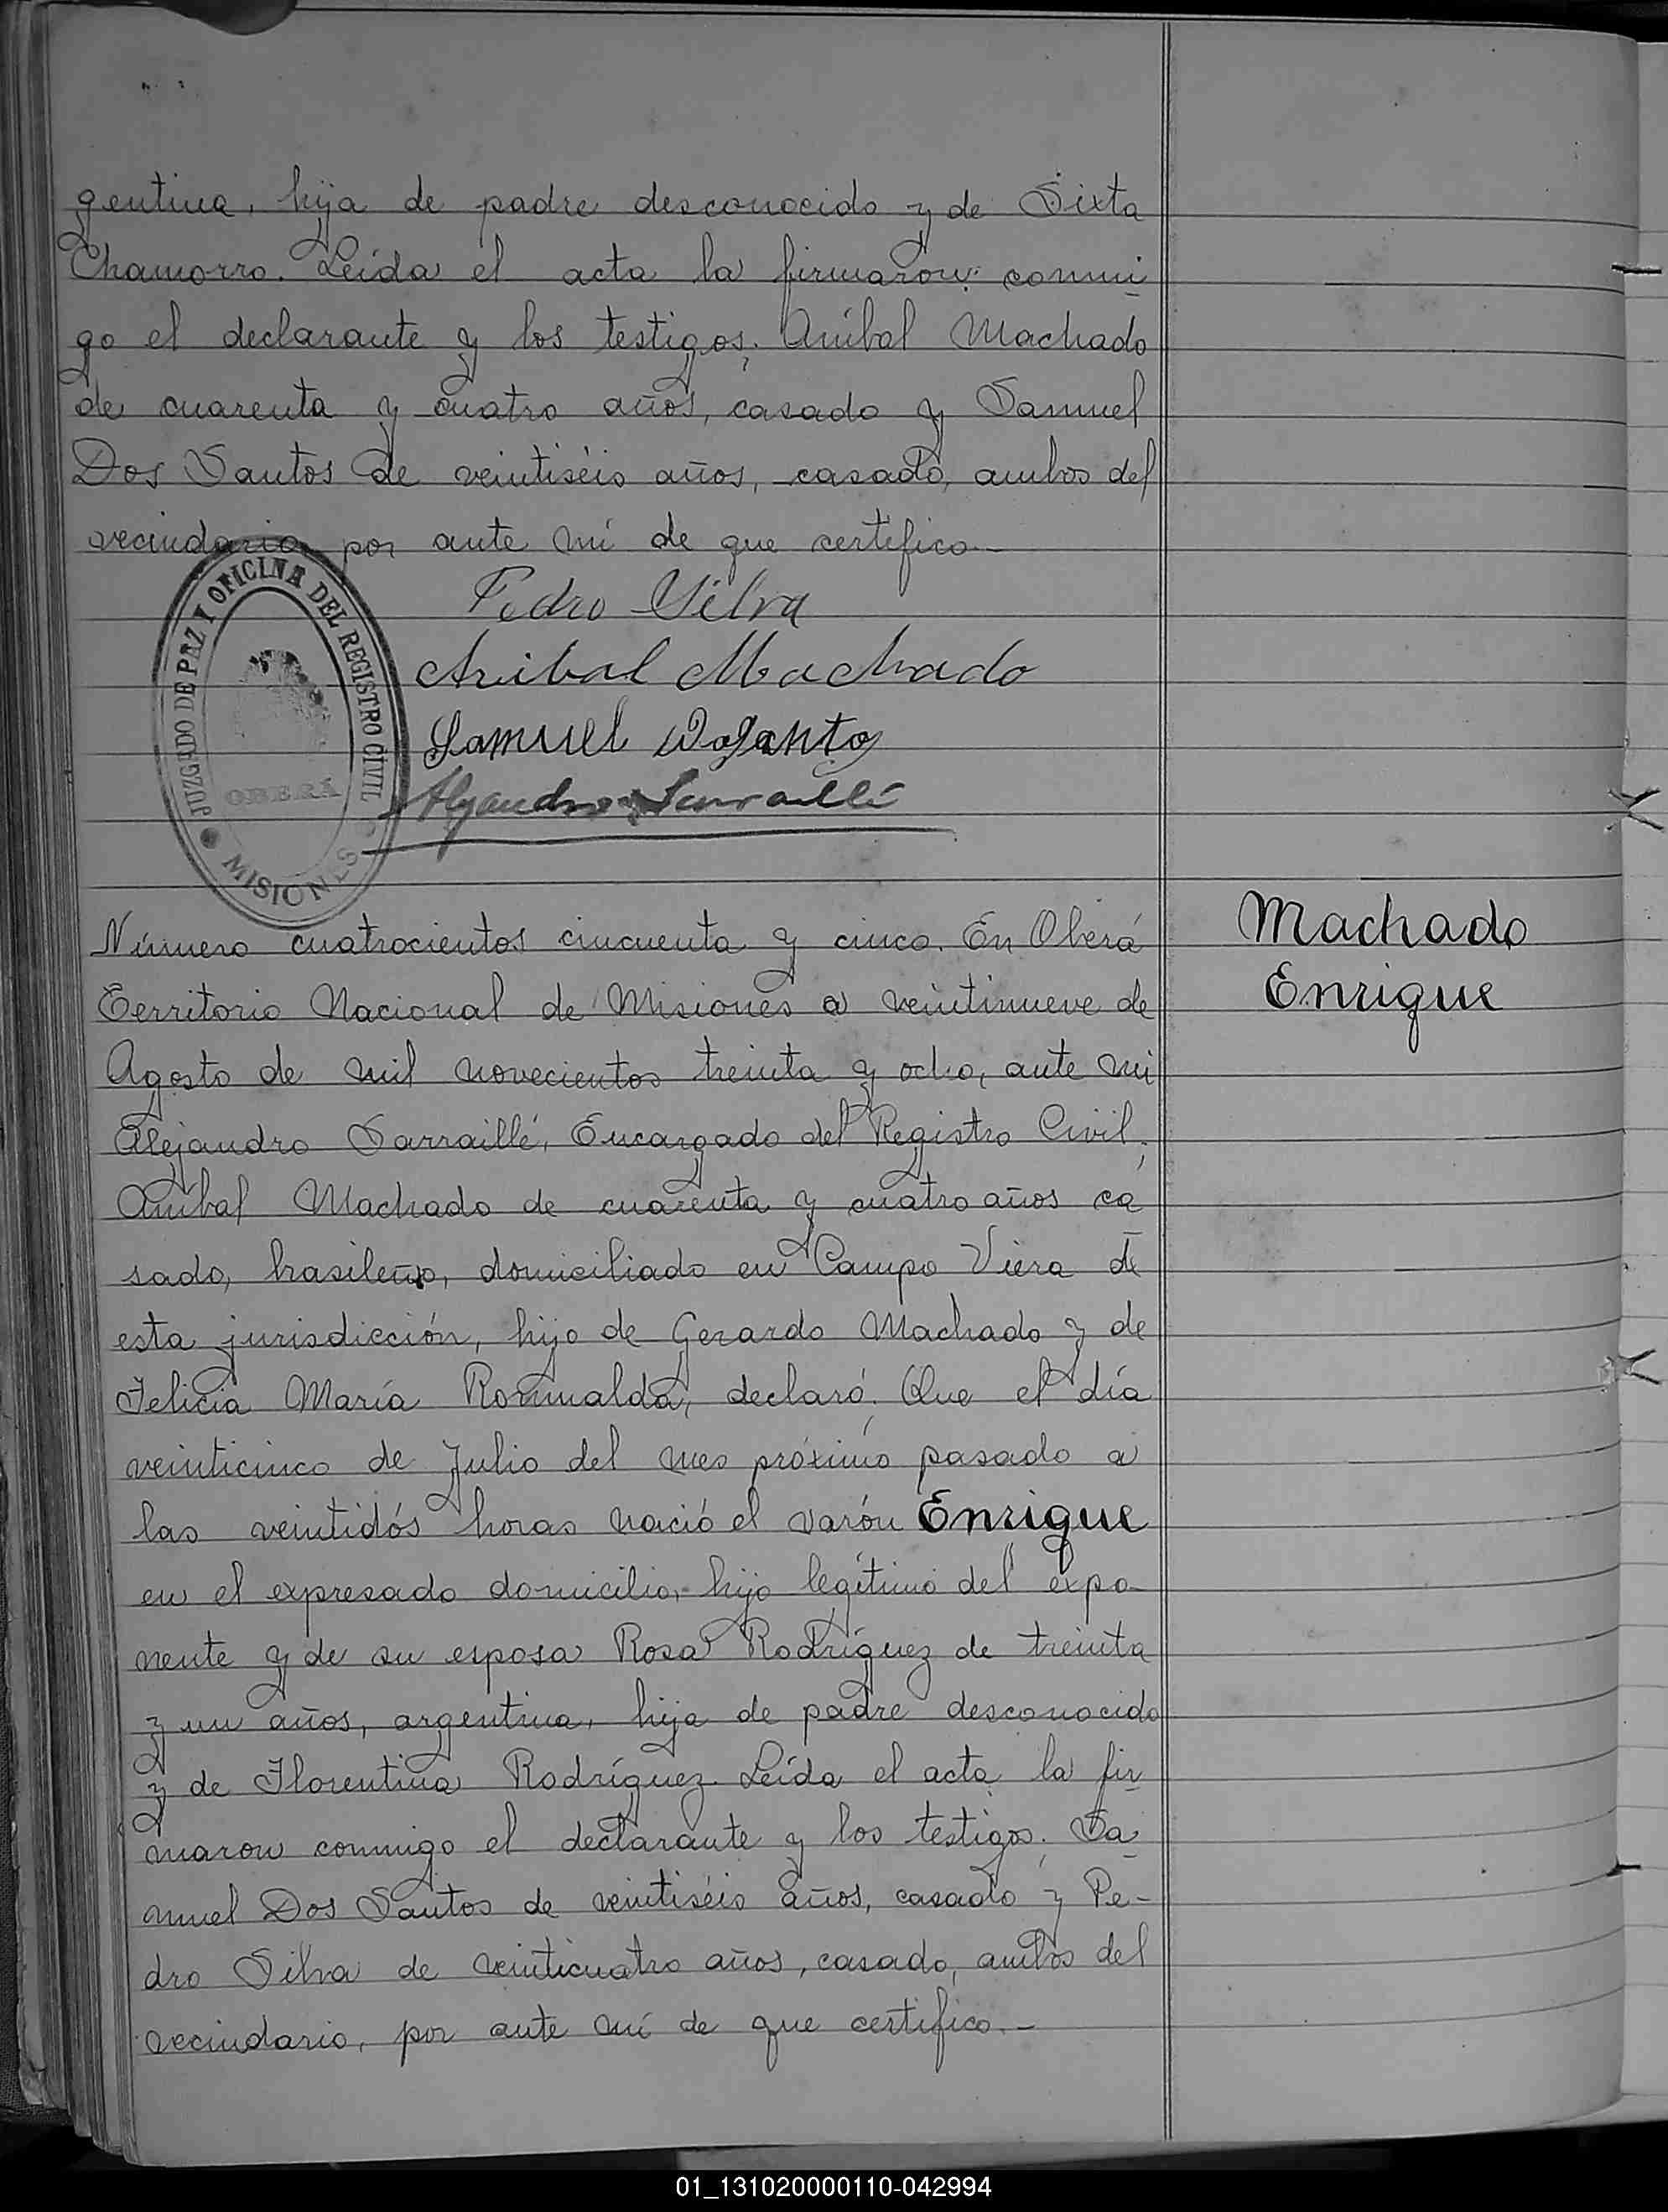 gentina, hija de padre desconocido y de Sixta
Chamorro. Leída el acta la firmaron conmi
go el declarante y los testigos: Aníbal Machado
de cuarenta y cuatro años, casado y Samuel
Dos Santos de veintiséis años, casado, ambos del
vecindario por ante mí de que certifico.-
Pedro Silva
Anibal Machado
Samuel Dosanto
Alejandro Sarraillé
JUZGADO DE PAZ Y OFICINA DEL REGISTRO CIVIL
OBERÁ
MISIONES
Número cuatrocientos cincuenta y cinco. En Oberá
Territorio Nacional de Misiones a veintinueve de
Agosto de mil novecientos treinta y ocho, ante mi
Alejandro Sarraillé, Encargado del Registro Civil,
Aníbal Machado de cuarenta y cuatro años ca
sado, brasileño, domiciliado en Campo Viera de
esta jurisdicción, hijo de Gerardo Machado y de
Felicia María Romualda, declaró: Que el día
veinticinco de Julio del mes próximo pasado a
las veintidós horas nació el varón Enrique
en el expresado domicilio, hijo legítimo del expo-
nente y de su esposa Rosa Rodríguez de treinta
y un años, argentina, hija de padre desconocido
y de Florentina Rodríguez. Leída el acta la fir
maron conmigo el declarante y los testigos: Sa
muel Dos Santos de veintiséis años, casado y Pe-
dro Silva de veinticuatro años, casado, ambos del
vecindario, por ante mí de que certifico.-
Machado
Enrique
01_131020000110-042994